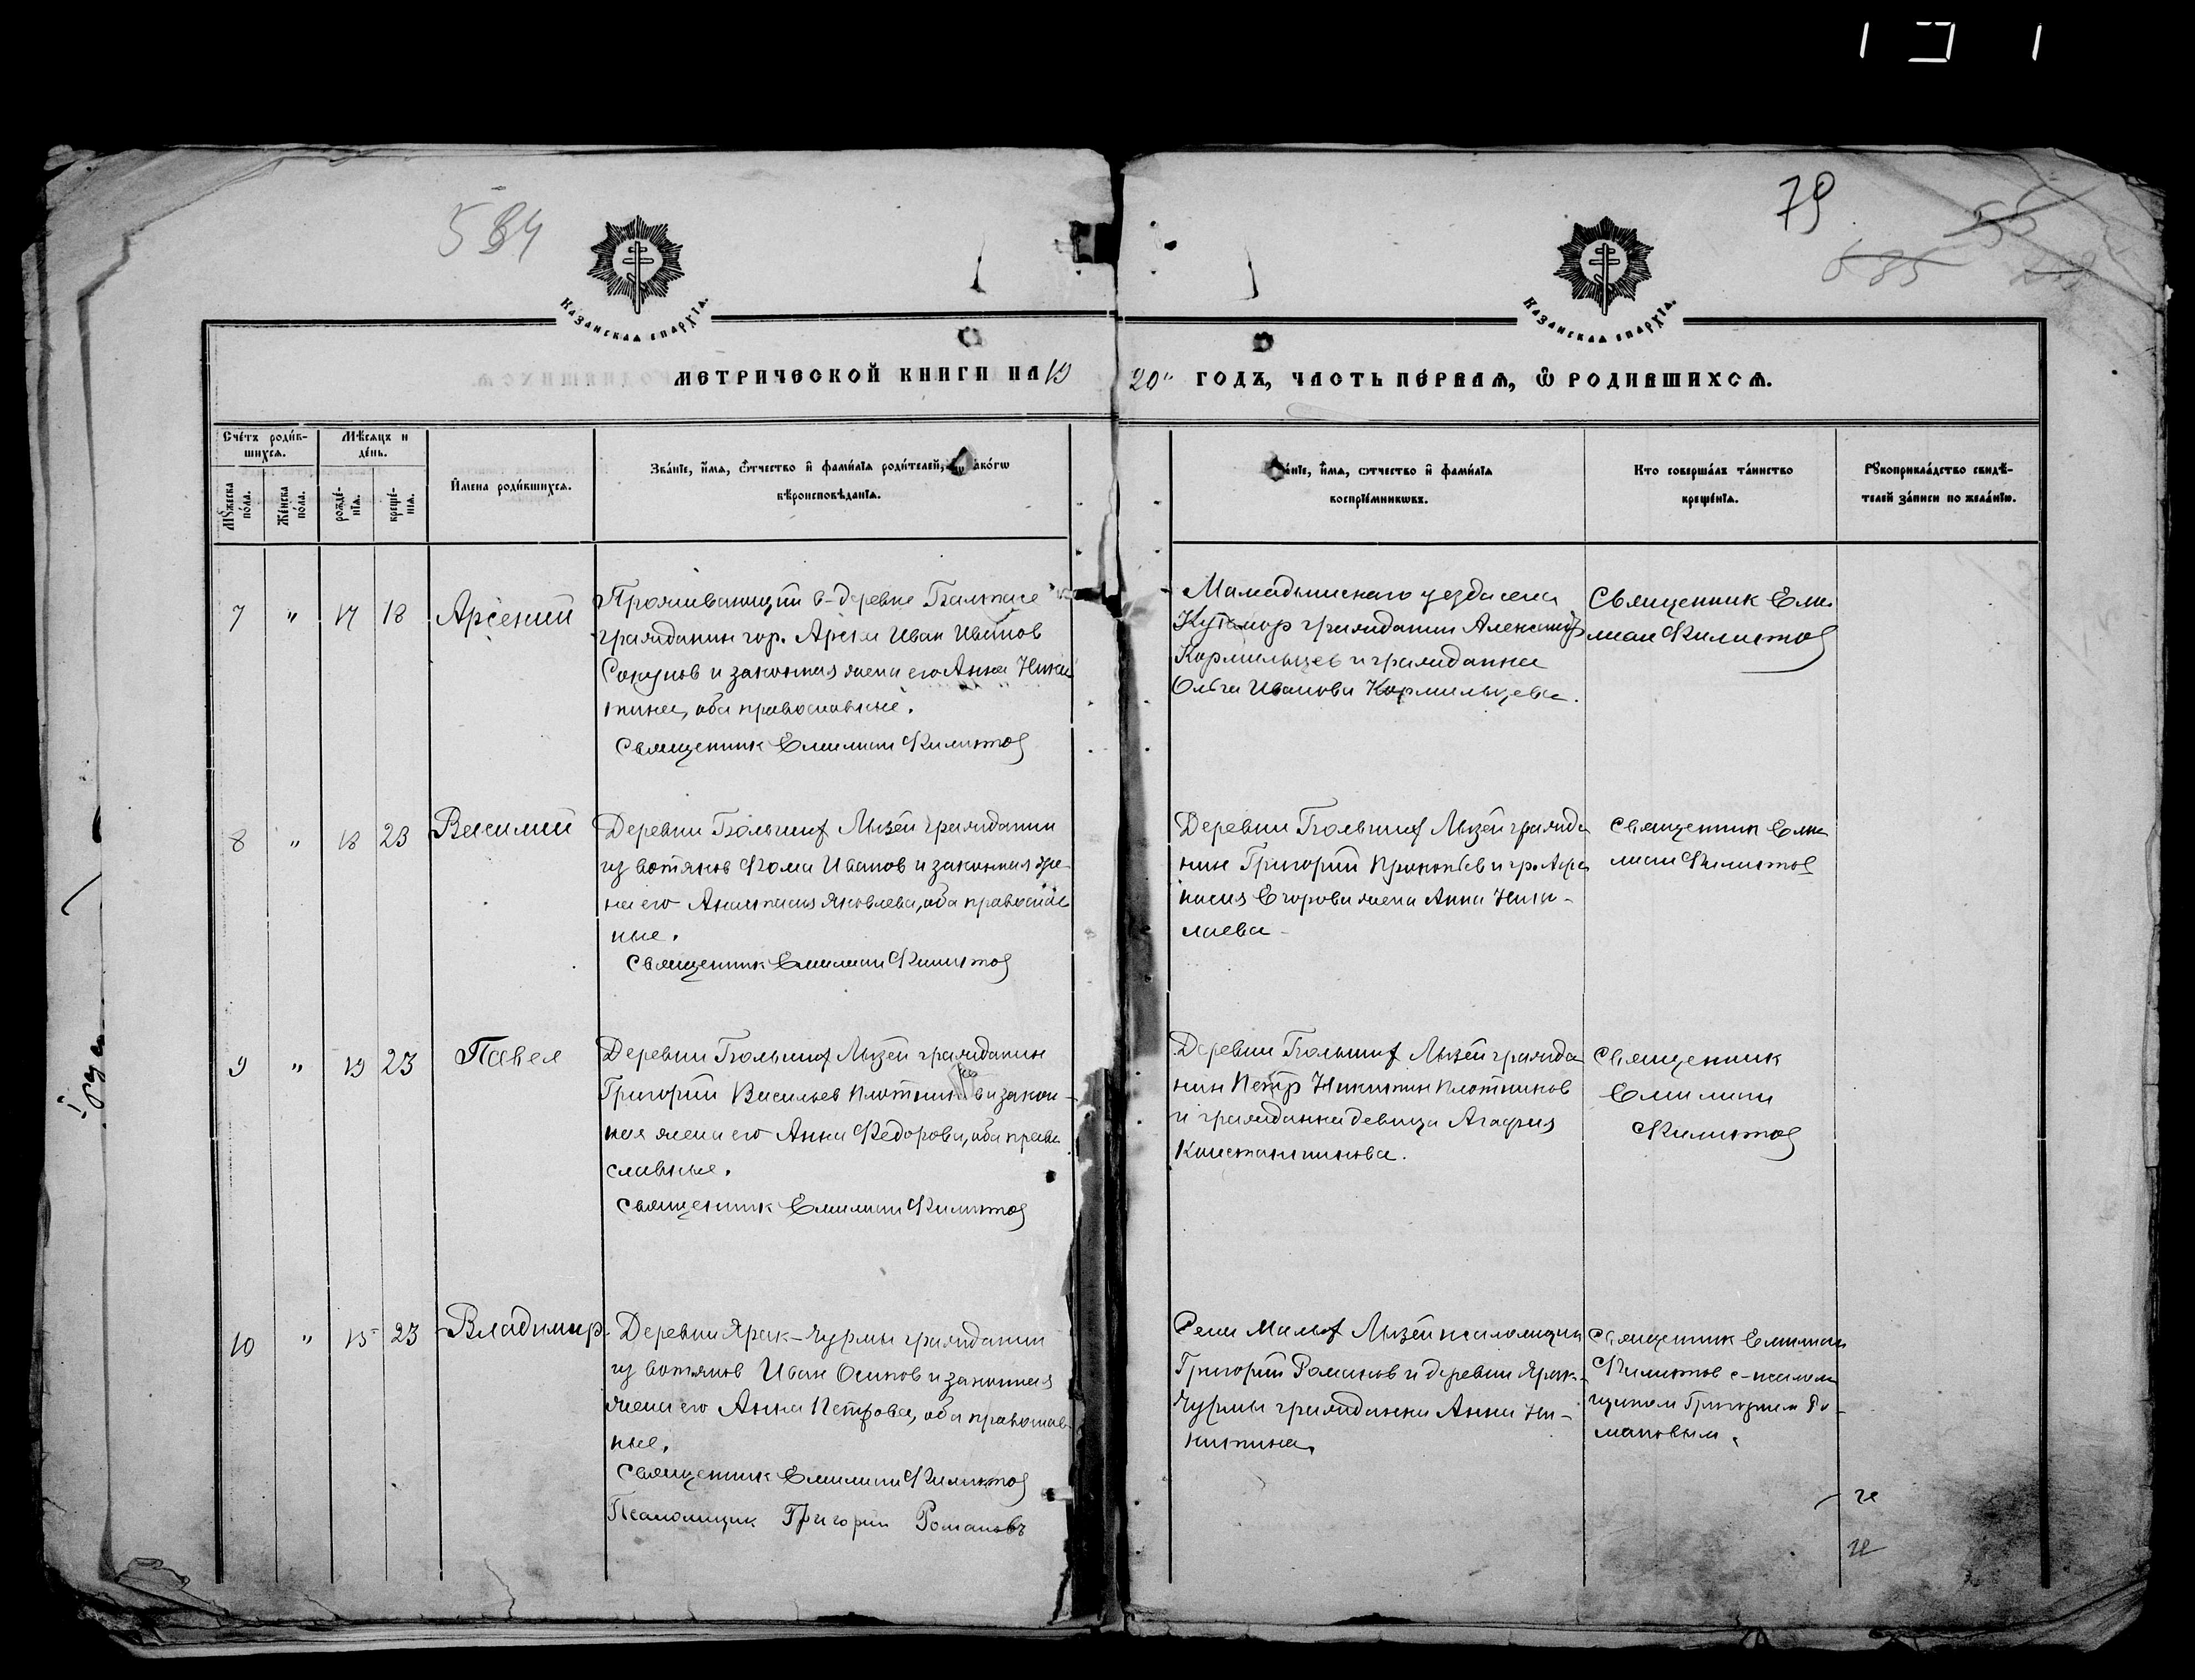 584
79
585
55
Казанская епархїѧ.
Казанская епархїѧ.
МЕТРИЧЕСКОЙ КНИГИ НА 19
20 ГОДЪ, ЧАСТЬ ПЕ́РВАЯ, Ѽ РОДИВШИХСѦ.
Сче́тъ роди́в-
шихсѧ.
Мꙋ́жеска по́ла.
Же́нска по́ла.
Мѣ́сѧцъ и
де́нь.
рожде́-
нїѧ.
креще́-
нїѧ.
И҆мена роди́вшихсѧ.
Зва́нїе, и҆́мѧ, ѻ҆́тчество и҆ фами́лїѧ роди́телей, како́гѡ
вѣроисповѣ́данїѧ.
и҆́мѧ, ѻ҆́тчество и҆ фами́лїѧ
воспрїе́мникѡвъ.
Кто соверша́лъ та́инство
креще́нїѧ.
Рꙋкоприкла́дство свидѣ́-
телей за́писи по жела́нїю.
7 " 17 18 Арсений
Проживающий в деревне
гражданин гор. Арска Иван Иванов
и законная жена его Анна Ники
тина, оба православные.
Священник Емилиан Филиппов
Мамадышскаго уезда села
гражданин Александр
Кормильцев и гражданка
Ольга Иванова Кормильцева.
Священник Еми
лиан Филиппов
8 " 18 23 Василий
Деревни Больших Лызей гражданин
из вотяков Фома Иванов и законная же-
на его Анастасия Яковлева, оба православ
ные.
Священник Емилиан Филиппов
Деревни Больших Лызей гражда
нин Григорий Прокопьев и гр. Афа
насия Егорова жена Анна Нико-
лаева
Священник Еми
лиан Филиппов
9 " 19 23 Павел
Деревни Больших Лызей гражданин
Григорий Васильев Плотников и закон-
ная жена его Анна Федорова, оба право
славные.
Священник Емилиан Филиппов
Деревни Больших Лызей гражда
нин Петр Никитин Плотников
и гражданка девица Агафия
Константинова.
Священник
Емилиан
Филиппов
10 " 15 23 Владимир
Деревни Ярак-Чурмы гражданин
из вотяков Иван Осипов и законная
жена его Анна Петрова, оба православ
ные.
Священник Емилиан Филиппов
Псаломщик Григорий Романовъ
Села Малых Лызей псаломщик
Григорий Романов и деревни Ярак-
Чурмы гражданка Анна Ни-
китина.
Священник Емилиан
Филиппов с псалом
щиком Григорием Ро-
мановым.